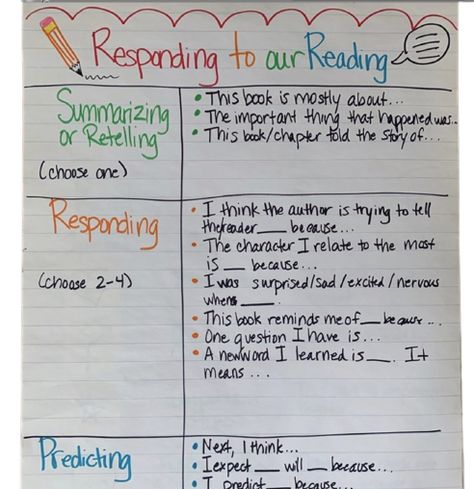 Responding to our Reading
Summarizing
or Retelling
(choose one)
• This book is mostly about...
• The important thing that happened was...
• This book/chapter told the story of...
Responding
(choose 2-4)
• I think the author is trying to tell
the reader ___ because...
• The character I relate to the most
is ___ because...
• I was surprised/sad/excited/nervous
when ___.
• This book reminds me of ___ because...
• One question I have is...
• A new word I learned is ___. It
means...
Predicting
• Next, I think...
• I expect ___ will ___ because...
• I predict ___ because...